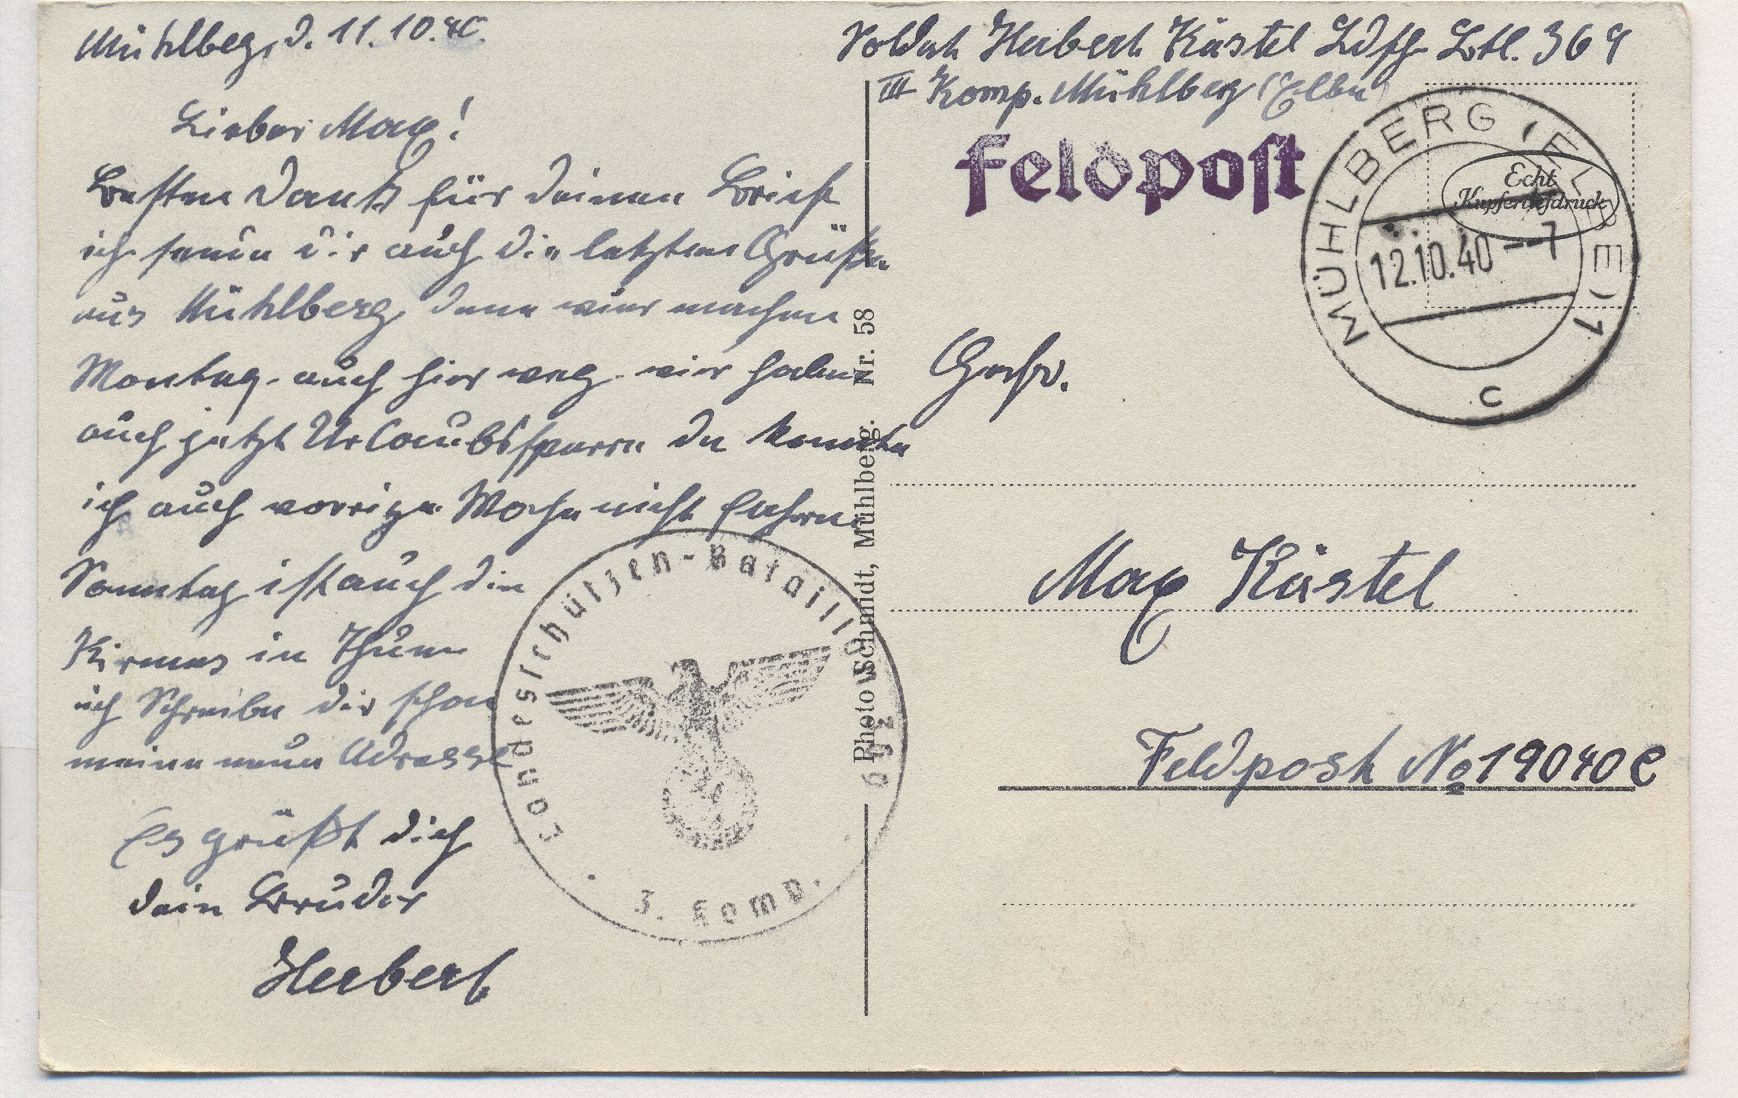 Mühlberg, d. 11.10.40.
Lieber Max!
Besten Dank für deinen Brief
ich sende dir auch die letzten Grüße
aus Mühlberg denn wier machen
Montag auch hier weg wir haben
auch jetzt Urlaubssperre da konnte
ich auch vorrige Woche nicht fahren
Sonntag ist auch die
Kirmes in Thum
ich Schreibe dir schon
meine neue Adresse
Es grüßt dich
dein Bruder
Herbert
Soldat Herbert Kästel Ldsch. Btl. 369
III Komp. Mühlberg (Elbe)
Feldpost
MÜHLBERG (ELBE) 1
12.10.40 --7
c
Echt
Kupfertiefdruck
Gefr.
Max Kästel
Feldpost No 19040 C
Photo Schmidt, Mühlberg. Nr. 58
Landesschützen-Bataillon 369
3. Komp.